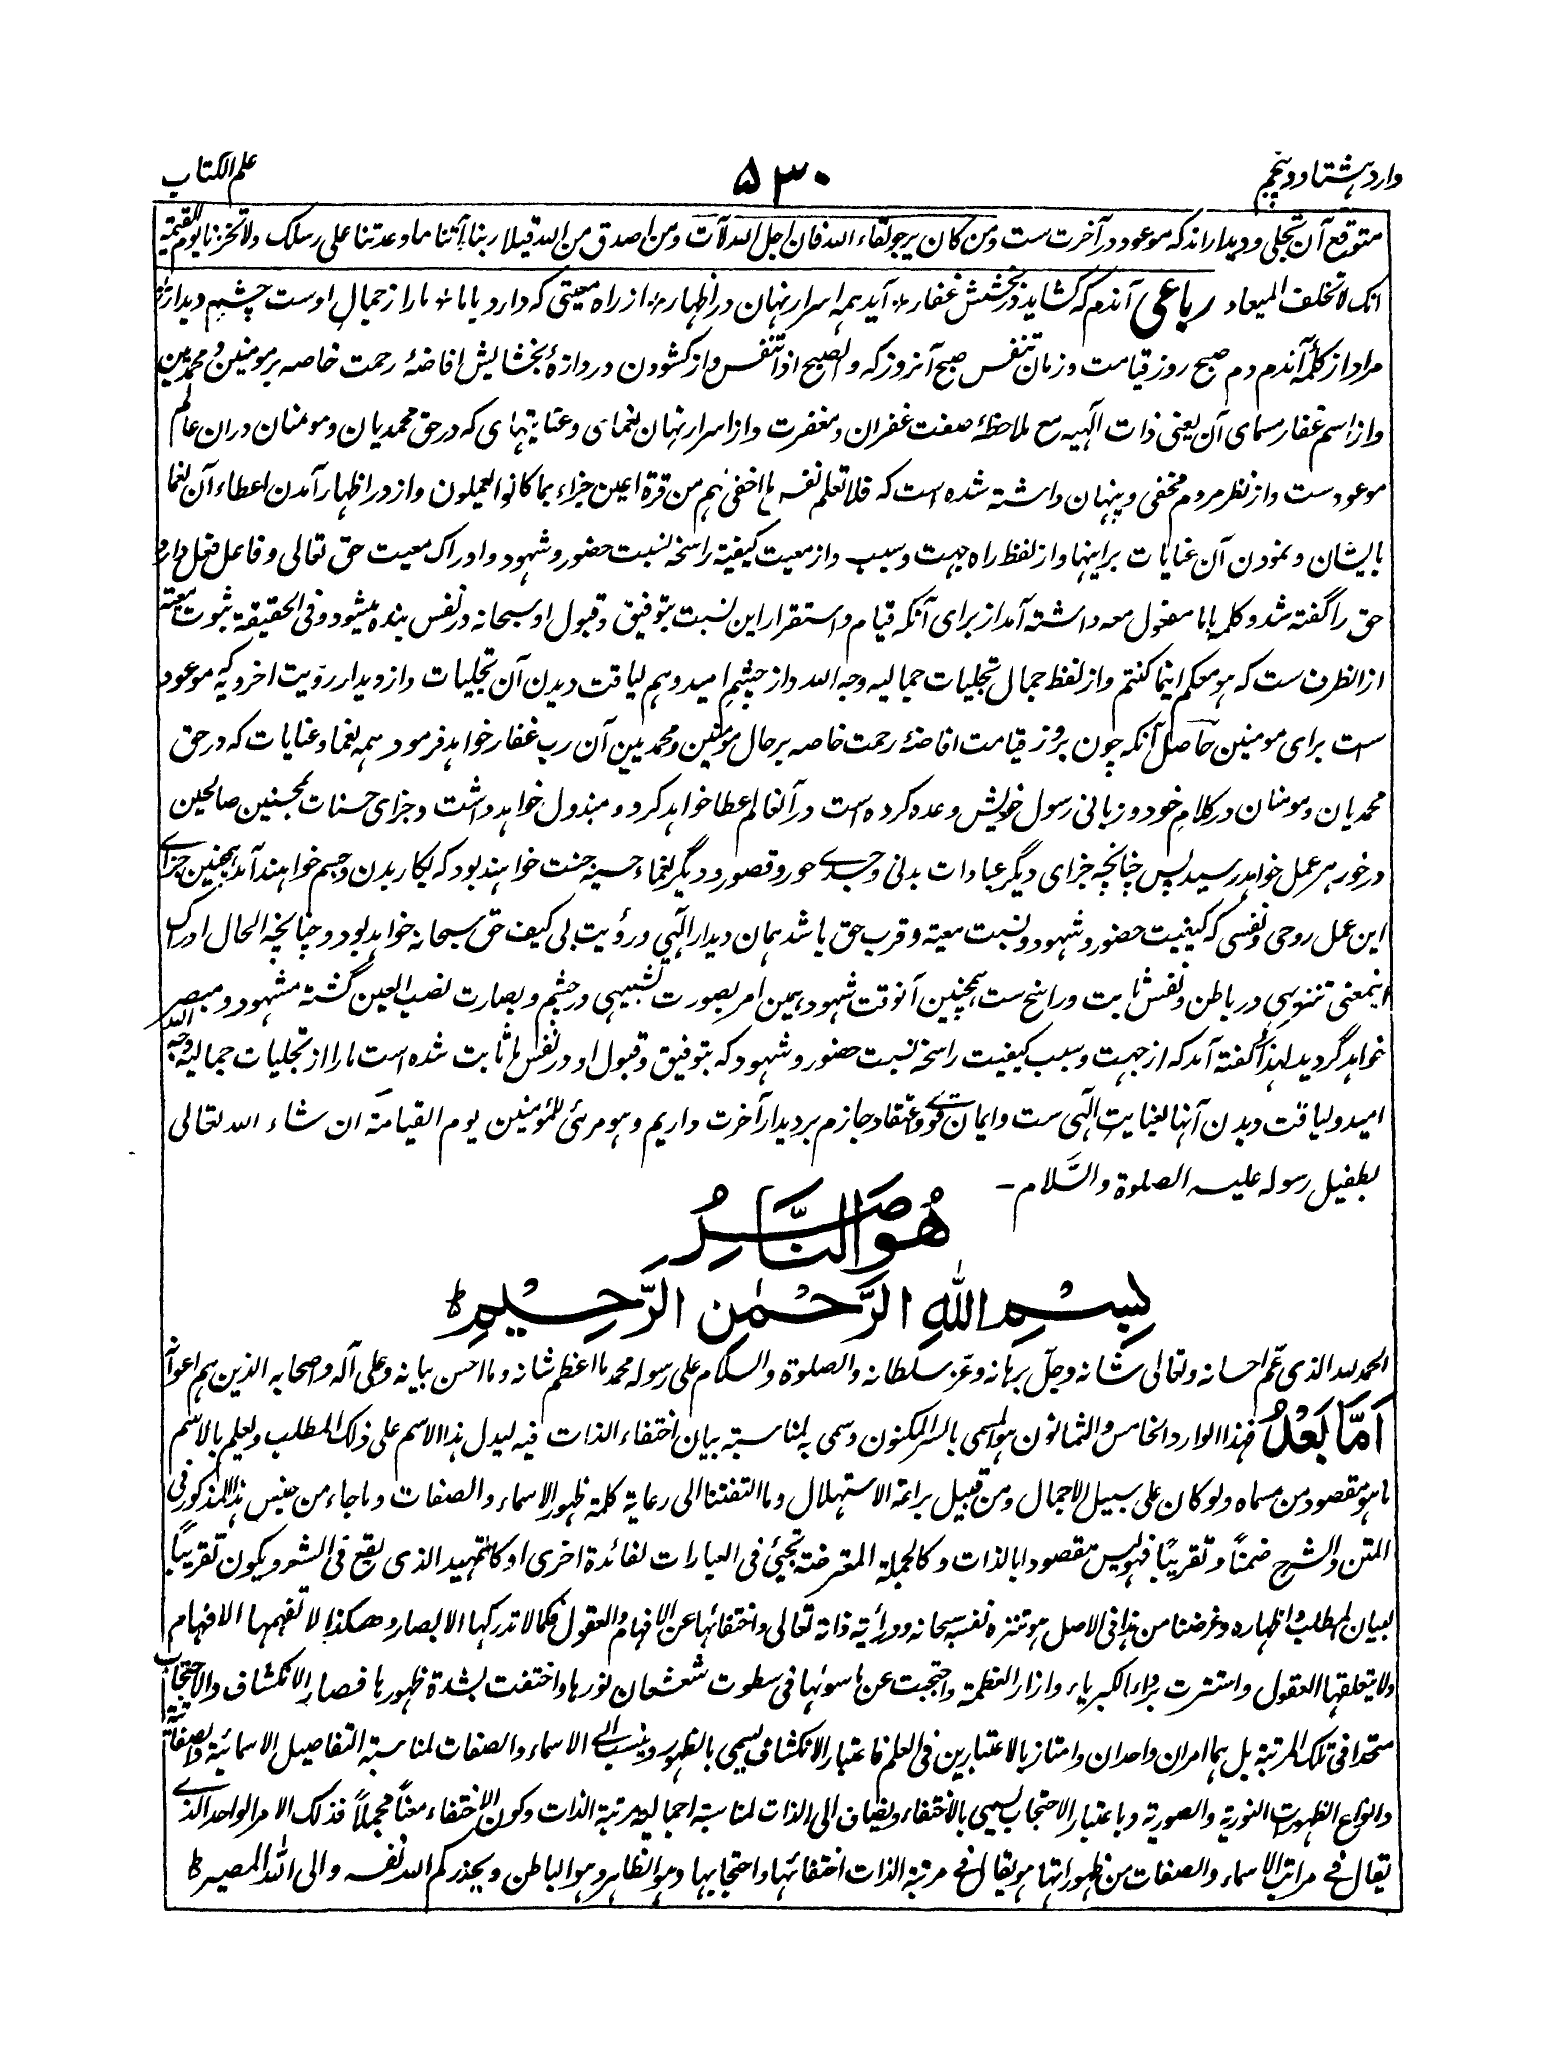 وارد ہشتاد و پنجم
۵۳۰
علم الکتاب
متوقع آن تجلی و دیدار اند که موعود در آخرت ست و من کان یرجو لقاء الله فان اجل الله لآت ومن اصدق من الله قیلا ربنا آتنا ما وعدتنا علی رسلک ولا تخزنا یوم القیمة
انک لا تخلف المیعاد رباعی آندم که کشاید در بخشش غفار آید همه اسرار نهان در اظهار از راه معیتی که دارد با ما ما را ز جمال اوست چشم دیدار
مراد از کلمهٔ آندم دم صبح روز قیامت و زمان تنفس صبح آنروز که والصبح اذا تنفس و از کشودن دروازهٔ بخشایش افاضهٔ رحمت خاصه بر مومنین و محمدیین
و از اسم غفار مسمای آن یعنی ذات الٰهیه مع ملاحظهٔ صفت غفران و مغفرت و از اسرار نهان نعمای و عنایتهای که در حق محمدیان و مومنان دران عالم
موعودست و از نظر مردم مخفی و پنهان داشته شده است که فلا تعلم نفس ما اخفی لهم من قرة اعین جزاء بما کانوا یعملون و از در اظهار آمدن اعطاء آن نعما
بایشان و نمودن آن عنایات برینها و از لفظ راه جهت و سبب و از معیت کیفیته راسخه نسبت حضور و شهود و ادراک معیت حق تعالی و فاعل فعل دارد
حق را گفته شد و کلمه باما مفعول معه داشته آمد از برای آنکه قیام و استقرار این نسبت بتوفیق و قبول او سبحانه در نفس بنده میشود و فی الحقیقة ثبوت معیته
از انطرف ست که هو معکم اینما کنتم و از لفظ جمال تجلیات جمالیه وجه الله و از چشم امید و هم لیاقت دیدن آن تجلیات و از دیدار رویت اخرویه موعود
ست برای مومنین حاصل آنکه چون بروز قیامت افاضهٔ رحمت خاصه بر حال مومنین و محمدیین آن رب غفار خواهد فرمود همه نعما و عنایات که در حق
محمدیان و مومنان در کلام خود و زبانی رسول خویش وعده کرده است در آنعالم اعطا خواهد کرد و مبذول خواهد داشت و جزای حسنات محسنین صالحین
در خور هر عمل خواهد رسید پس چنانچه جزای دیگر عبادات بدنی و جسدی حور و قصور و دیگر نعماء حسیه جنت خواهند بود که بکار بدن و جسم خواهند آمد همچنین جزای
این عمل روحی و نفسی که کیفیت حضور و شهود و نسبت معیته و قرب حق باشد همان دیدار الٰهی و رؤیت بی کیف حق سبحانه خواهد بود و چنانچه الحال ادراک
اینمعنی تنزیهی در باطن و نفس ثابت و راسخ ست همچنین آنوقت شهود همین امر بصورت تشبیهی در چشم و بصارت نصب العین گشته مشهود و مبصر
خواهد گردید لهذا گفته آمد که از جهت و سبب کیفیت راسخه نسبت حضور و شهود که بتوفیق و قبول او در نفس ما ثابت شده است ما را از تجلیات جمالیه وجه الله
امید و لیاقت دیدن آنها بعنایت الٰهی ست و ایمان قوی و اعتقاد جازم بر دیدار آخرت داریم و هو مرئی للمؤمنین یوم القیامة ان شاء الله تعالی
بطفیل رسوله علیه الصلوة والسّلام ـ
هُوَ النَّاصِرُ
بِسْمِ اللهِ الرَّحْمٰنِ الرَّحِيْمِ
الحمد لله الذی عمّ احسانه وتعالی شانه وجلّ برهانه وعزّ سلطانه والصلوة والسلام علی رسوله محمد ما اعظم شانه وما احسن بیانه وعلی آله واصحابه الذین هم اعوانه
اَمَّا بَعْدُ فهذا الوارد الخامس والثمانون هو المسمی بالسر المکنون وسمی به لمناسبته بیان اختفاء الذات فیه لیدل هذا الاسم علی ذلک المطلب ویعلم بالاسم
ما هو مقصود من مسماه ولو کان علی سبیل الاجمال ومن قبیل براعة الاستهلال وما التفتنا الی رعایة کلمة ظهور الاسماء والصفات وما جاء من جنس هذا المذکور فی
المتن والشرح ضمناً وتقریباً فهو لیس مقصودا بالذات وکالجملة المعترضة تجیٔ فی العبارات لفائدة اخری او کالتمهید الذی یقع فی الشعر ویکون تقریباً
لبیان المطلب واظهاره وغرضنا من هذا فی الاصل هو تنزه نفسه سبحانه وورائیة ذاته تعالی واختفائها عن الافهام والعقول فکما لا تدرکها الابصار وهکذا لا تفهمها الافهام
ولا یتعلقها العقول واستترت برداء الکبریاء وازار العظمة واحتجبت عن ما سواها فی سطوت شعشعان نورها واختفت بشدة ظهورها فصار الانکشاف والاحتجاب
متحدا فی تلک المرتبة بل هما امران واحدان وامتاز بالاعتبارین فی العلم فاعتبار الانکشاف یسمی بالظهور وینسب الی الاسماء والصفات لمناسبة التفاصیل الاسمائیة والصفاتیة
وانواع الظهورات النوریة والصوریة وباعتبار الاحتجاب یسمی بالاختفاء ویضاف الی الذات لمناسبة اجمالیة مرتبة الذات وکون الاختفاء معناً مجملاً فذلک الامر الواحد الذی
یقال فی مراتب الاسماء والصفات من ظهوراتها هو یقال فی مرتبة الذات اختفائها واحتجابها وهو الظاهر وهو الباطن ویحذرکم الله نفسه والی الله المصیر